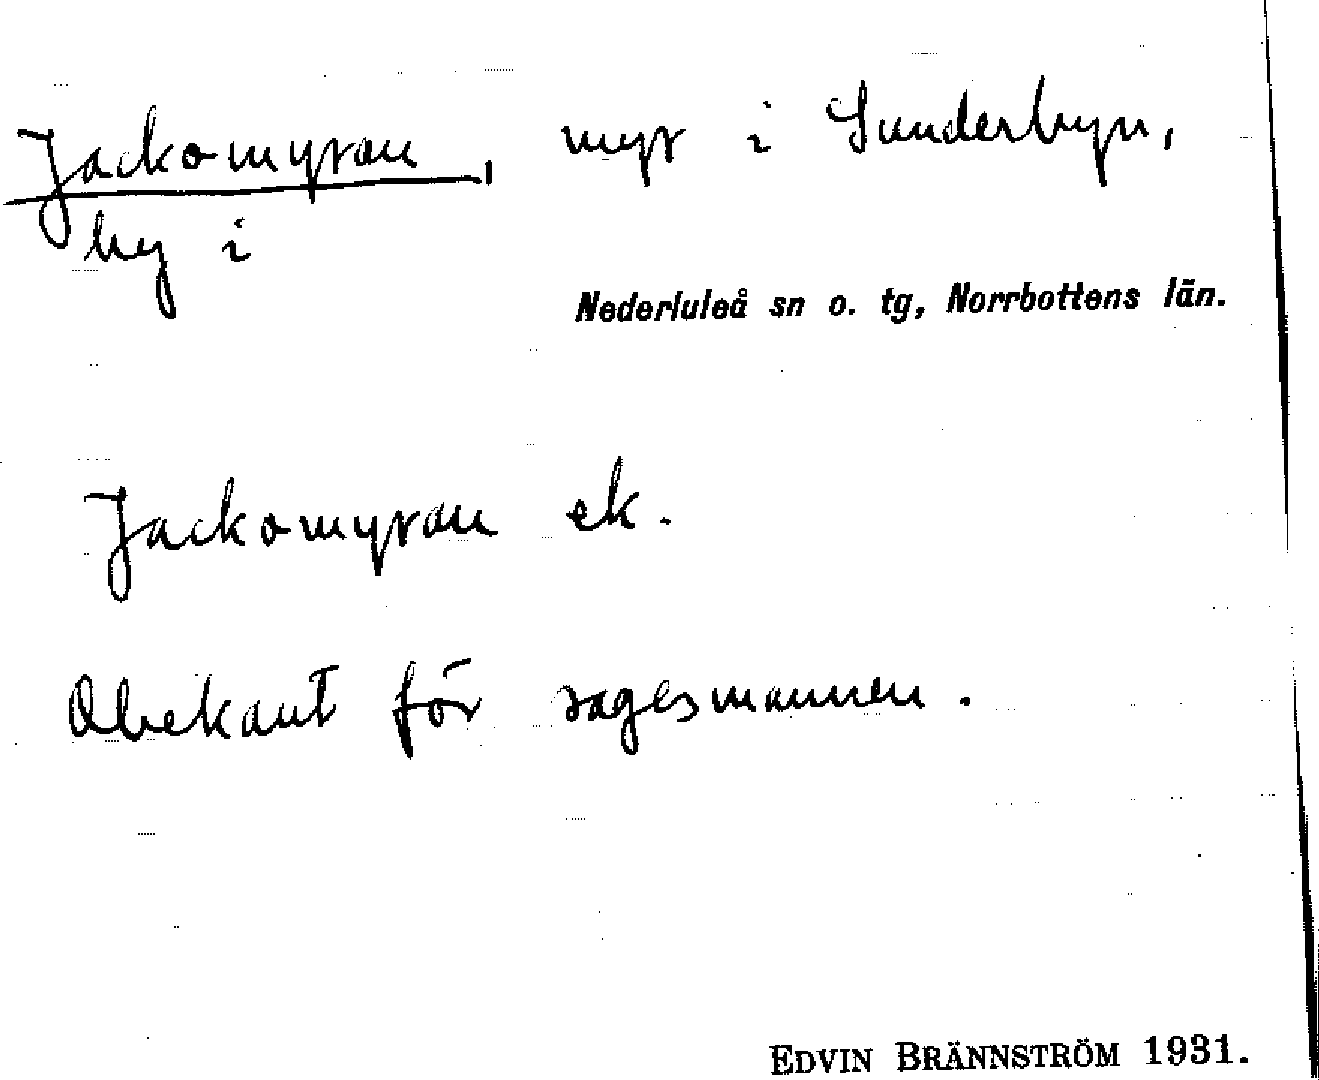 Jackomyran, myr i Sunderbyn,
by i
Nederluleå sn o. tg, Norrbottens län.
Jackomyran ek.
Obekant för sagesmannen.
EDVIN BRÄNNSTRÖM 1931.